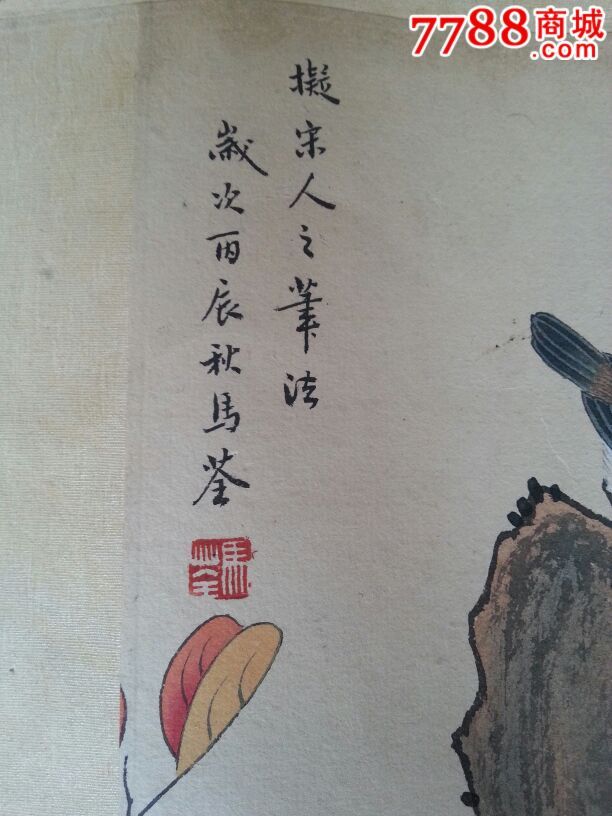 7788商城
.com
擬宋人之筆法
歲次丙辰秋馬荃
馬荃